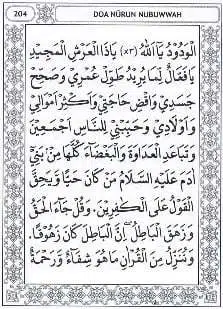 204
DOA NÛRUN NUBUWWAH
الْوَدُوْدُ يَا اَللهُ (×٣) يَاذَا الْعَرْشِ الْمَجِيْدِ
يَافَعَّالُ لِمَا يُرِيْدُ طَوِّلْ عُمْرِيْ وَصَحِّحْ
جَسَدِيْ وَاقْضِ حَاجَتِيْ وَاَكْثِرْ اَمْوَالِيْ
وَاَوْلَادِيْ وَحَبِّبْنِيْ لِلنَّاسِ اَجْمَعِيْنَ
وَتَبَاعَدِ الْعَدَاوَةَ وَالْبَغْضَآءَ كُلَّهَا مِنْ بَنِيْ
اٰدَمَ عَلَيْهِ السَّلَامُ مَنْ كَانَ حَيًّا وَيَحِقَّ
الْقَوْلُ عَلَى الْكٰفِرِيْنَ. وَقُلْ جَآءَ الْحَقُّ
وَزَهَقَ الْبَاطِلُ اِنَّ الْبَاطِلَ كَانَ زَهُوْقًا.
وَنُنَزِّلُ مِنَ الْقُرْاٰنِ مَا هُوَ شِفَآءٌ وَرَحْمَةٌ